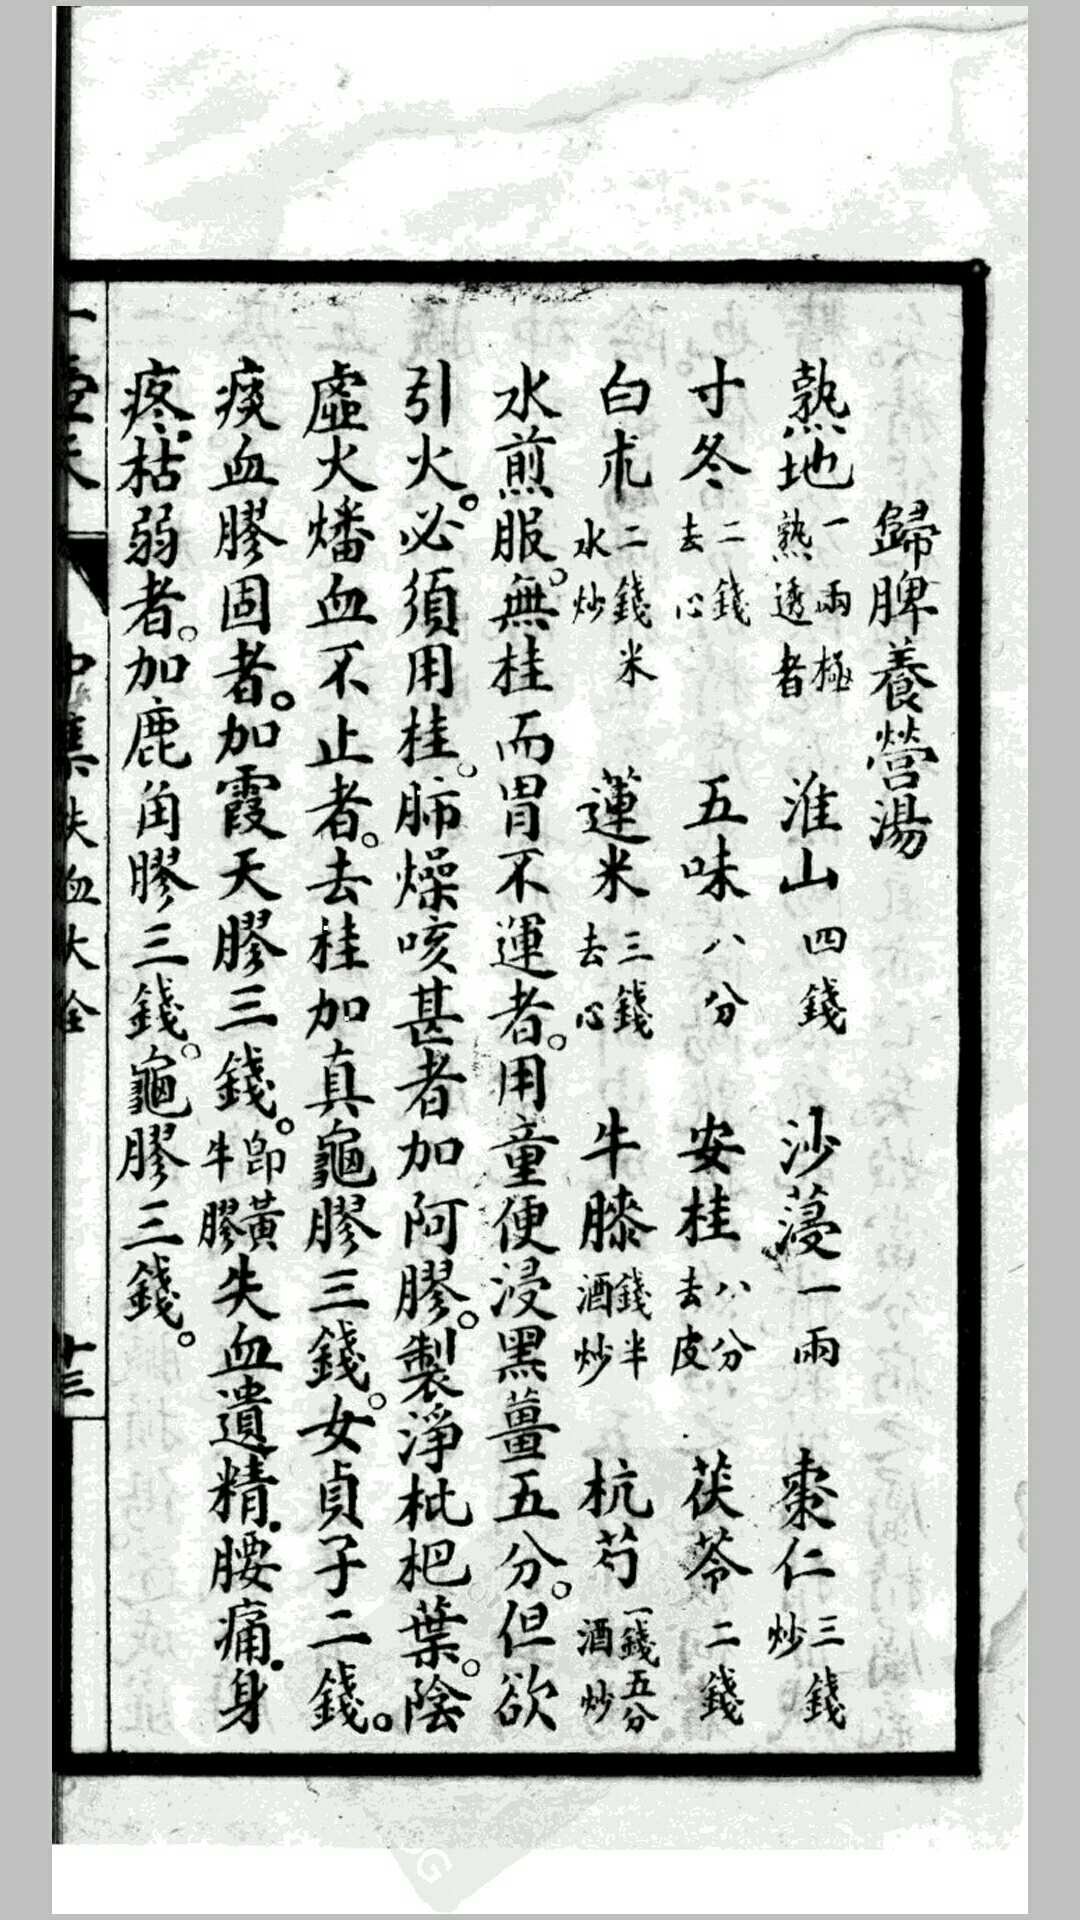 歸脾養營湯
熟地一兩極熟透者 淮山四錢 沙蔆一兩 棗仁三錢炒
寸冬二錢去心 五味八分 安桂八分去皮 茯苓二錢
白朮二錢米水炒 蓮米三錢去心 牛膝錢半酒炒 杭芍一錢五分酒炒
水煎服。無桂而胃不運者。用童便浸黑薑五分。但欲
引火。必須用桂。肺燥咳甚者加阿膠。製淨枇杷葉。陰
虛火燔血不止者。去桂加真龜膠三錢。女貞子二錢。
痰血膠固者。加霞天膠三錢。卽黃牛膠失血遺精.腰痛.身
疼.枯弱者。加鹿角膠三錢。龜膠三錢。
中集失血大全
十三